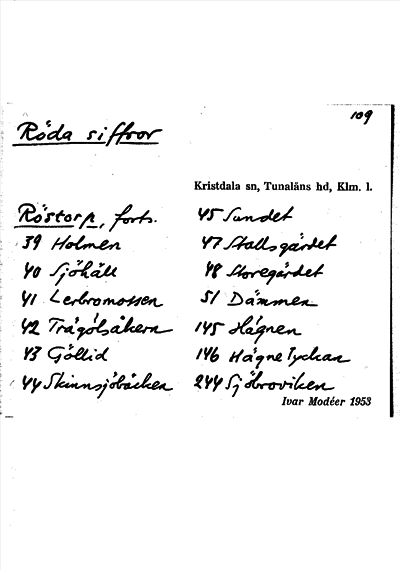 109
Röda siffror
Kristdala sn, Tunaläns hd, Klm. l.
Röstorp, forts.
39 Holmen
40 Sjöhäll
41 Lerbromossen
42 Trågölsåkern
43 Göllid
44 Skinnsjöbäcken
45 Sundet
47 Stallsgärdet
48 Storegärdet
51 Dämmen
145 Hägnen
146 Hägnetyckan
244 Sjöbroviken
Ivar Modéer 1953